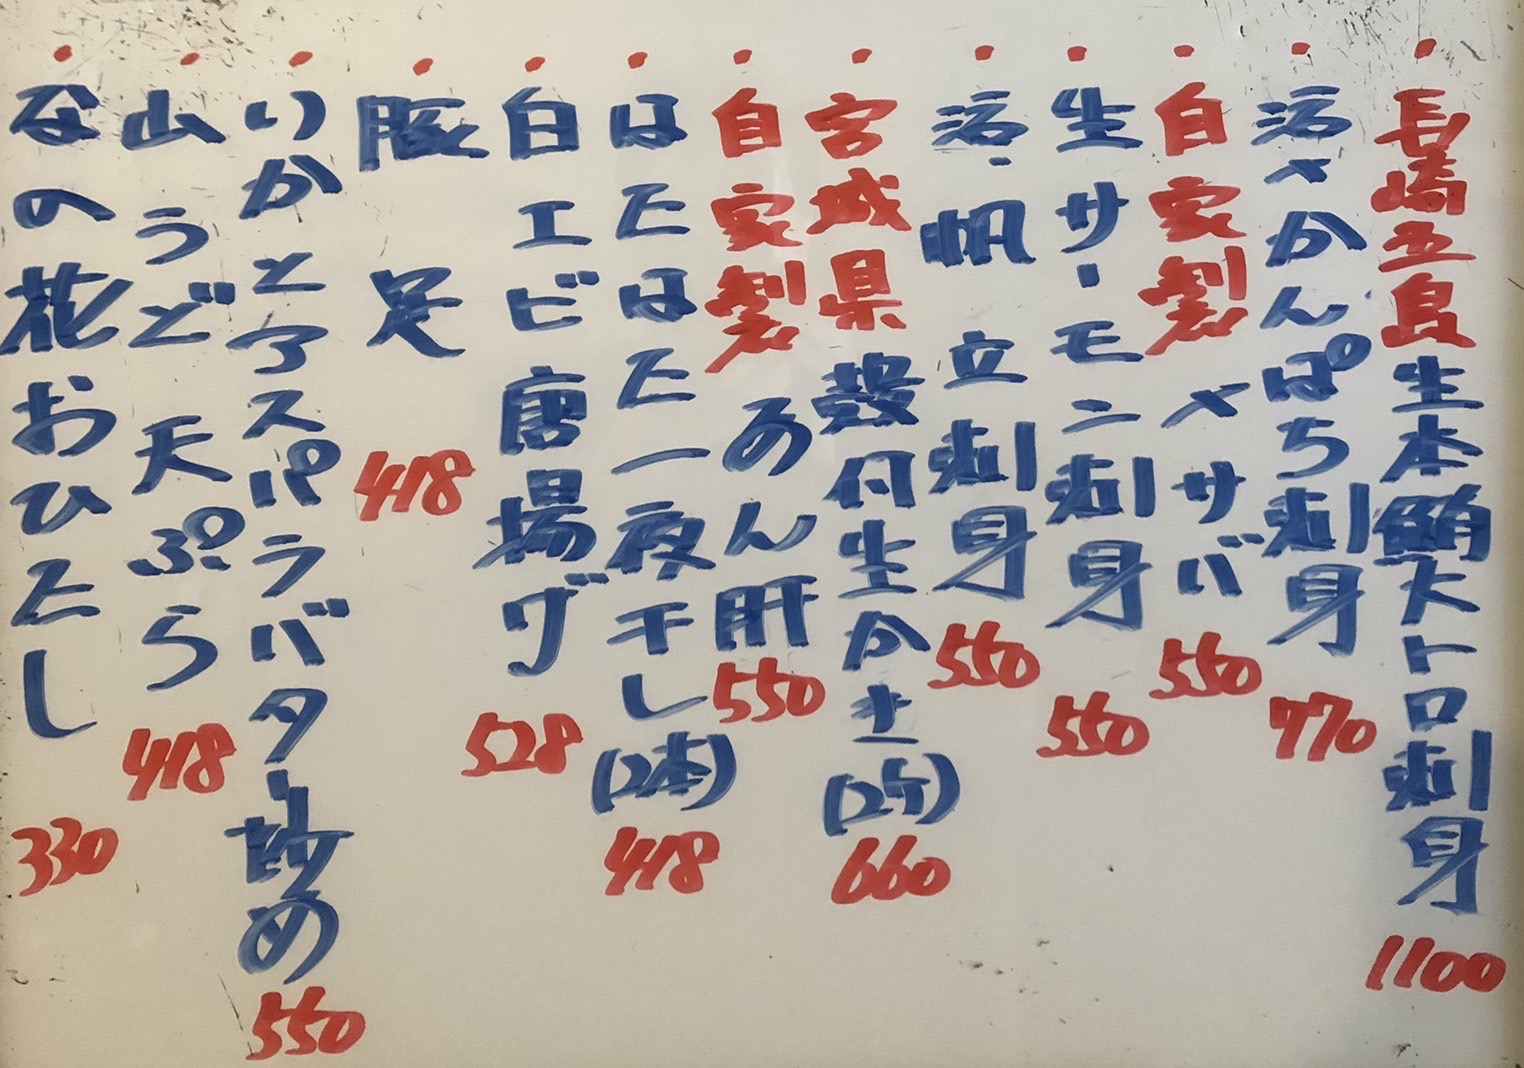 ・長崎五島生本鮪大トロ刺身 1100
・活〆かんぱち刺身 770
・自家製〆サバ 550
・生サーモン刺身 550
・活・帆立刺身 550
・宮城県殻付生かき(2ケ) 660
・自家製あん肝 550
・はたはた一夜干し(2本) 418
・白エビ唐揚げ 528
・豚足 418
・いかとアスパラバター炒め 550
・山うど天ぷら 418
・なの花おひたし 330